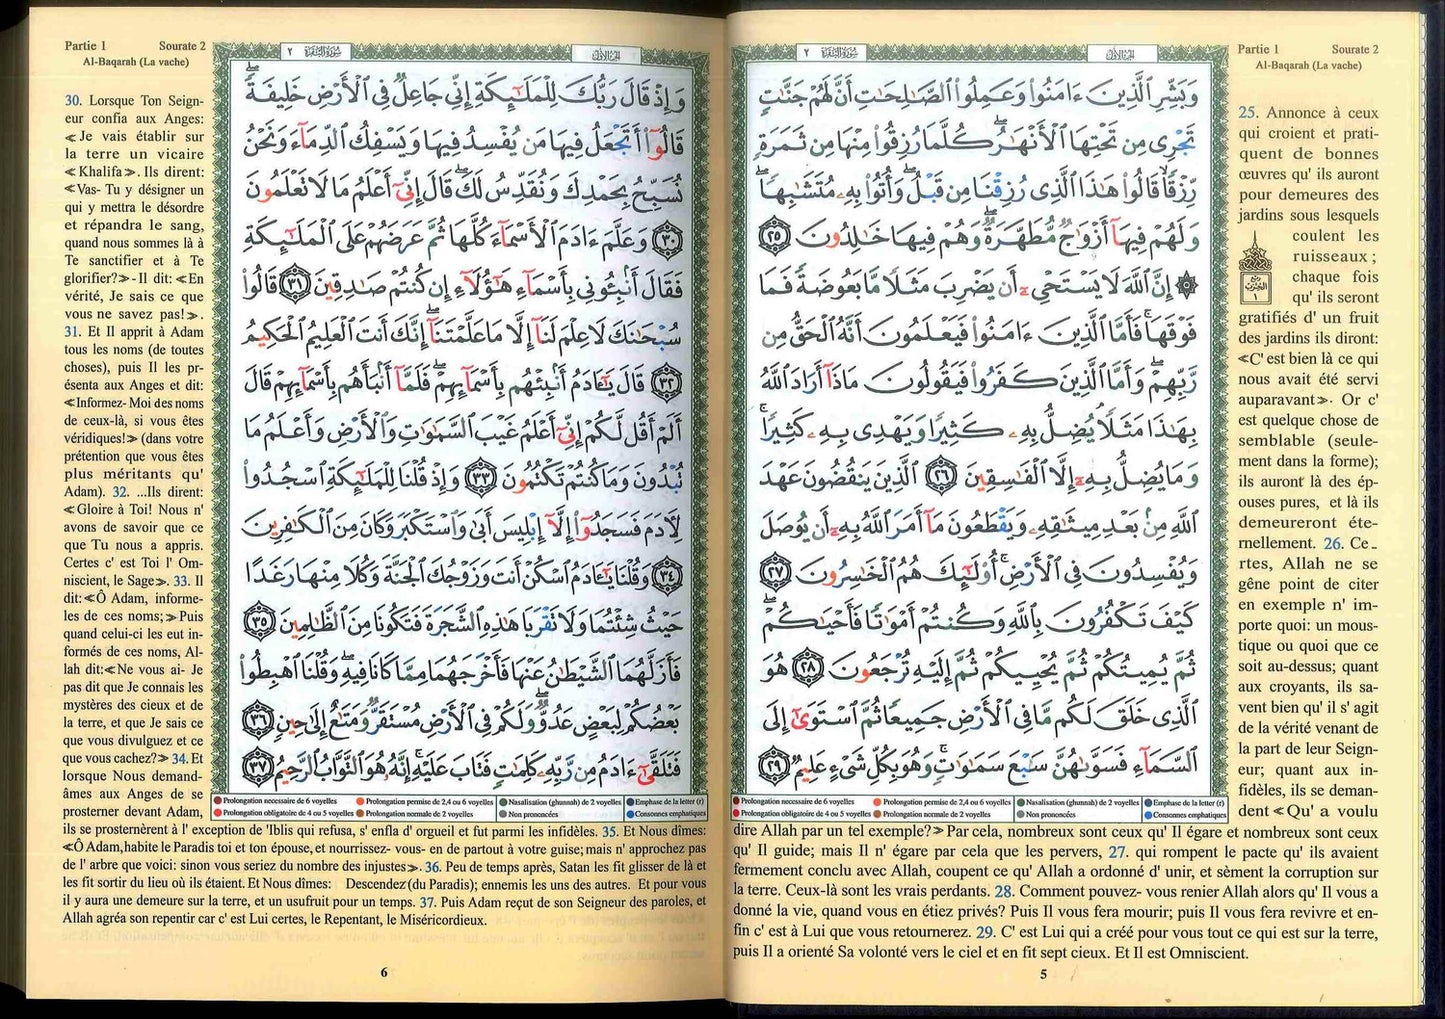 Partie 1 Sourate 2
Al-Baqarah (La vache)
سورة البقرة ٢
الجزء الأول
وَبَشِّرِ ٱلَّذِينَ ءَامَنُوا۟ وَعَمِلُوا۟ ٱلصَّـٰلِحَـٰتِ أَنَّ لَهُمْ جَنَّـٰتٍ
تَجْرِى مِن تَحْتِهَا ٱلْأَنْهَـٰرُ ۖ كُلَّمَا رُزِقُوا۟ مِنْهَا مِن ثَمَرَةٍ
رِّزْقًا ۙ قَالُوا۟ هَـٰذَا ٱلَّذِى رُزِقْنَا مِن قَبْلُ ۖ وَأُتُوا۟ بِهِۦ مُتَشَـٰبِهًا ۖ
وَلَهُمْ فِيهَآ أَزْوَٰجٌ مُّطَهَّرَةٌ ۖ وَهُمْ فِيهَا خَـٰلِدُونَ ٢٥
۞ إِنَّ ٱللَّهَ لَا يَسْتَحْىِۦٓ أَن يَضْرِبَ مَثَلًا مَّا بَعُوضَةً فَمَا
فَوْقَهَا ۚ فَأَمَّا ٱلَّذِينَ ءَامَنُوا۟ فَيَعْلَمُونَ أَنَّهُ ٱلْحَقُّ مِن
رَّبِّهِمْ ۖ وَأَمَّا ٱلَّذِينَ كَفَرُوا۟ فَيَقُولُونَ مَاذَآ أَرَادَ ٱللَّهُ
بِهَـٰذَا مَثَلًا ۘ يُضِلُّ بِهِۦ كَثِيرًا وَيَهْدِى بِهِۦ كَثِيرًا ۚ
وَمَا يُضِلُّ بِهِۦٓ إِلَّا ٱلْفَـٰسِقِينَ ٢٦ ٱلَّذِينَ يَنقُضُونَ عَهْدَ
ٱللَّهِ مِنۢ بَعْدِ مِيثَـٰقِهِۦ وَيَقْطَعُونَ مَآ أَمَرَ ٱللَّهُ بِهِۦٓ أَن يُوصَلَ
وَيُفْسِدُونَ فِى ٱلْأَرْضِ ۚ أُو۟لَـٰٓئِكَ هُمُ ٱلْخَـٰسِرُونَ ٢٧
كَيْفَ تَكْفُرُونَ بِٱللَّهِ وَكُنتُمْ أَمْوَٰتًا فَأَحْيَـٰكُمْ ۖ
ثُمَّ يُمِيتُكُمْ ثُمَّ يُحْيِيكُمْ ثُمَّ إِلَيْهِ تُرْجَعُونَ ٢٨ هُوَ
ٱلَّذِى خَلَقَ لَكُم مَّا فِى ٱلْأَرْضِ جَمِيعًا ثُمَّ ٱسْتَوَىٰٓ إِلَى
ٱلسَّمَآءِ فَسَوَّىٰهُنَّ سَبْعَ سَمَـٰوَٰتٍ ۚ وَهُوَ بِكُلِّ شَىْءٍ عَلِيمٌ ٢٩
Prolongation necessaire de 6 voyelles Prolongation permise de 2,4 ou 6 voyelles Nasalisation (ghunnah) de 2 voyelles Emphase de la letter (r)
Prolongation obligatoire de 4 ou 5 voyelles Prolongation normale de 2 voyelles Non prononcées Consonnes emphatiques
25. Annonce à ceux
qui croient et prati-
quent de bonnes
œuvres qu' ils auront
pour demeures des
jardins sous lesquels
coulent les
ruisseaux ;
chaque fois
qu' ils seront
gratifiés d' un fruit
des jardins ils diront:
≪C'est bien là ce qui
nous avait été servi
auparavant≫. Or c'
est quelque chose de
semblable (seule-
ment dans la forme);
ils auront là des ép-
ouses pures, et là ils
demeureront éte-
rnellement. 26. Ce_
rtes, Allah ne se
gêne point de citer
en exemple n' im-
porte quoi: un mous-
tique ou quoi que ce
soit au-dessus; quant
aux croyants, ils sa-
vent bien qu' il s' agit
de la vérité venant de
la part de leur Seign-
eur; quant aux in-
fidèles, ils se deman-
dent ≪Qu' a voulu
dire Allah par un tel exemple?≫ Par cela, nombreux sont ceux qu' Il égare et nombreux sont ceux
qu' Il guide; mais Il n' égare par cela que les pervers, 27. qui rompent le pacte qu' ils avaient
fermement conclu avec Allah, coupent ce qu' Allah a ordonné d' unir, et sèment la corruption sur
la terre. Ceux-là sont les vrais perdants. 28. Comment pouvez- vous renier Allah alors qu' Il vous a
donné la vie, quand vous en étiez privés? Puis Il vous fera mourir; puis Il vous fera revivre et en-
fin c' est à Lui que vous retournerez. 29. C' est Lui qui a créé pour vous tout ce qui est sur la terre,
puis Il a orienté Sa volonté vers le ciel et en fit sept cieux. Et Il est Omniscient.
5
Partie 1 Sourate 2
Al-Baqarah (La vache)
سورة البقرة ٢
الجزء الأول
وَإِذْ قَالَ رَبُّكَ لِلْمَلَـٰٓئِكَةِ إِنِّى جَاعِلٌ فِى ٱلْأَرْضِ خَلِيفَةً ۖ
قَالُوٓا۟ أَتَجْعَلُ فِيهَا مَن يُفْسِدُ فِيهَا وَيَسْفِكُ ٱلدِّمَآءَ وَنَحْنُ
نُسَبِّحُ بِحَمْدِكَ وَنُقَدِّسُ لَكَ ۖ قَالَ إِنِّىٓ أَعْلَمُ مَا لَا تَعْلَمُونَ
٣٠ وَعَلَّمَ ءَادَمَ ٱلْأَسْمَآءَ كُلَّهَا ثُمَّ عَرَضَهُمْ عَلَى ٱلْمَلَـٰٓئِكَةِ
فَقَالَ أَنۢبِـُٔونِى بِأَسْمَآءِ هَـٰٓؤُلَآءِ إِن كُنتُمْ صَـٰدِقِينَ ٣١ قَالُوا۟
سُبْحَـٰنَكَ لَا عِلْمَ لَنَآ إِلَّا مَا عَلَّمْتَنَآ ۖ إِنَّكَ أَنتَ ٱلْعَلِيمُ ٱلْحَكِيمُ
٣٢ قَالَ يَـٰٓـَٔادَمُ أَنۢبِئْهُم بِأَسْمَآئِهِمْ ۖ فَلَمَّآ أَنۢبَأَهُم بِأَسْمَآئِهِمْ قَالَ
أَلَمْ أَقُل لَّكُمْ إِنِّىٓ أَعْلَمُ غَيْبَ ٱلسَّمَـٰوَٰتِ وَٱلْأَرْضِ وَأَعْلَمُ مَا
تُبْدُونَ وَمَا كُنتُمْ تَكْتُمُونَ ٣٣ وَإِذْ قُلْنَا لِلْمَلَـٰٓئِكَةِ ٱسْجُدُوا۟
لِـَٔادَمَ فَسَجَدُوٓا۟ إِلَّآ إِبْلِيسَ أَبَىٰ وَٱسْتَكْبَرَ وَكَانَ مِنَ ٱلْكَـٰفِرِينَ
٣٤ وَقُلْنَا يَـٰٓـَٔادَمُ ٱسْكُنْ أَنتَ وَزَوْجُكَ ٱلْجَنَّةَ وَكُلَا مِنْهَا رَغَدًا
حَيْثُ شِئْتُمَا وَلَا تَقْرَبَا هَـٰذِهِ ٱلشَّجَرَةَ فَتَكُونَا مِنَ ٱلظَّـٰلِمِينَ ٣٥
فَأَزَلَّهُمَا ٱلشَّيْطَـٰنُ عَنْهَا فَأَخْرَجَهُمَا مِمَّا كَانَا فِيهِ ۖ وَقُلْنَا ٱهْبِطُوا۟
بَعْضُكُمْ لِبَعْضٍ عَدُوٌّ ۖ وَلَكُمْ فِى ٱلْأَرْضِ مُسْتَقَرٌّ وَمَتَـٰعٌ إِلَىٰ حِينٍ ٣٦
فَتَلَقَّىٰٓ ءَادَمُ مِن رَّبِّهِۦ كَلِمَـٰتٍ فَتَابَ عَلَيْهِ ۚ إِنَّهُۥ هُوَ ٱلتَّوَّابُ ٱلرَّحِيمُ ٣٧
Prolongation necessaire de 6 voyelles Prolongation permise de 2,4 ou 6 voyelles Nasalisation (ghunnah) de 2 voyelles Emphase de la letter (r)
Prolongation obligatoire de 4 ou 5 voyelles Prolongation normale de 2 voyelles Non prononcées Consonnes emphatiques
30. Lorsque Ton Seign-
eur confia aux Anges:
≪Je vais établir sur
la terre un vicaire
≪Khalifa≫. Ils dirent:
≪Vas- Tu y désigner un
qui y mettra le désordre
et répandra le sang,
quand nous sommes là à
Te sanctifier et à Te
glorifier?≫-Il dit: ≪En
vérité, Je sais ce que
vous ne savez pas!≫.
31. Et Il apprit à Adam
tous les noms (de toutes
choses), puis Il les pr-
ésenta aux Anges et dit:
≪Informez- Moi des noms
de ceux-là, si vous êtes
véridiques!≫ (dans votre
prétention que vous êtes
plus méritants qu'
Adam). 32. ...Ils dirent:
≪Gloire à Toi! Nous n'
avons de savoir que ce
que Tu nous a appris.
Certes c' est Toi l' Om-
niscient, le Sage≫. 33. Il
dit:≪Ô Adam, informe-
les de ces noms;≫Puis
quand celui-ci les eut in-
formés de ces noms, Al-
lah dit:≪Ne vous ai- Je
pas dit que Je connais les
mystères des cieux et de
la terre, et que Je sais ce
que vous divulguez et ce
que vous cachez?≫ 34. Et
lorsque Nous demand-
âmes aux Anges de se
prosterner devant Adam,
ils se prosternèrent à l' exception de 'Iblis qui refusa, s' enfla d' orgueil et fut parmi les infidèles. 35. Et Nous dîmes:
≪Ô Adam,habite le Paradis toi et ton épouse,et nourrissez- vous- en de partout à votre guise;mais n' approchez pas
de l' arbre que voici: sinon vous seriez du nombre des injustes≫. 36. Peu de temps après, Satan les fit glisser de là et
les fit sortir du lieu où ils étaient. Et Nous dîmes: Descendez(du Paradis); ennemis les uns des autres. Et pour vous
il y aura une demeure sur la terre, et un usufruit pour un temps. 37. Puis Adam reçut de son Seigneur des paroles, et
Allah agréa son repentir car c' est Lui certes, le Repentant, le Miséricordieux.
6